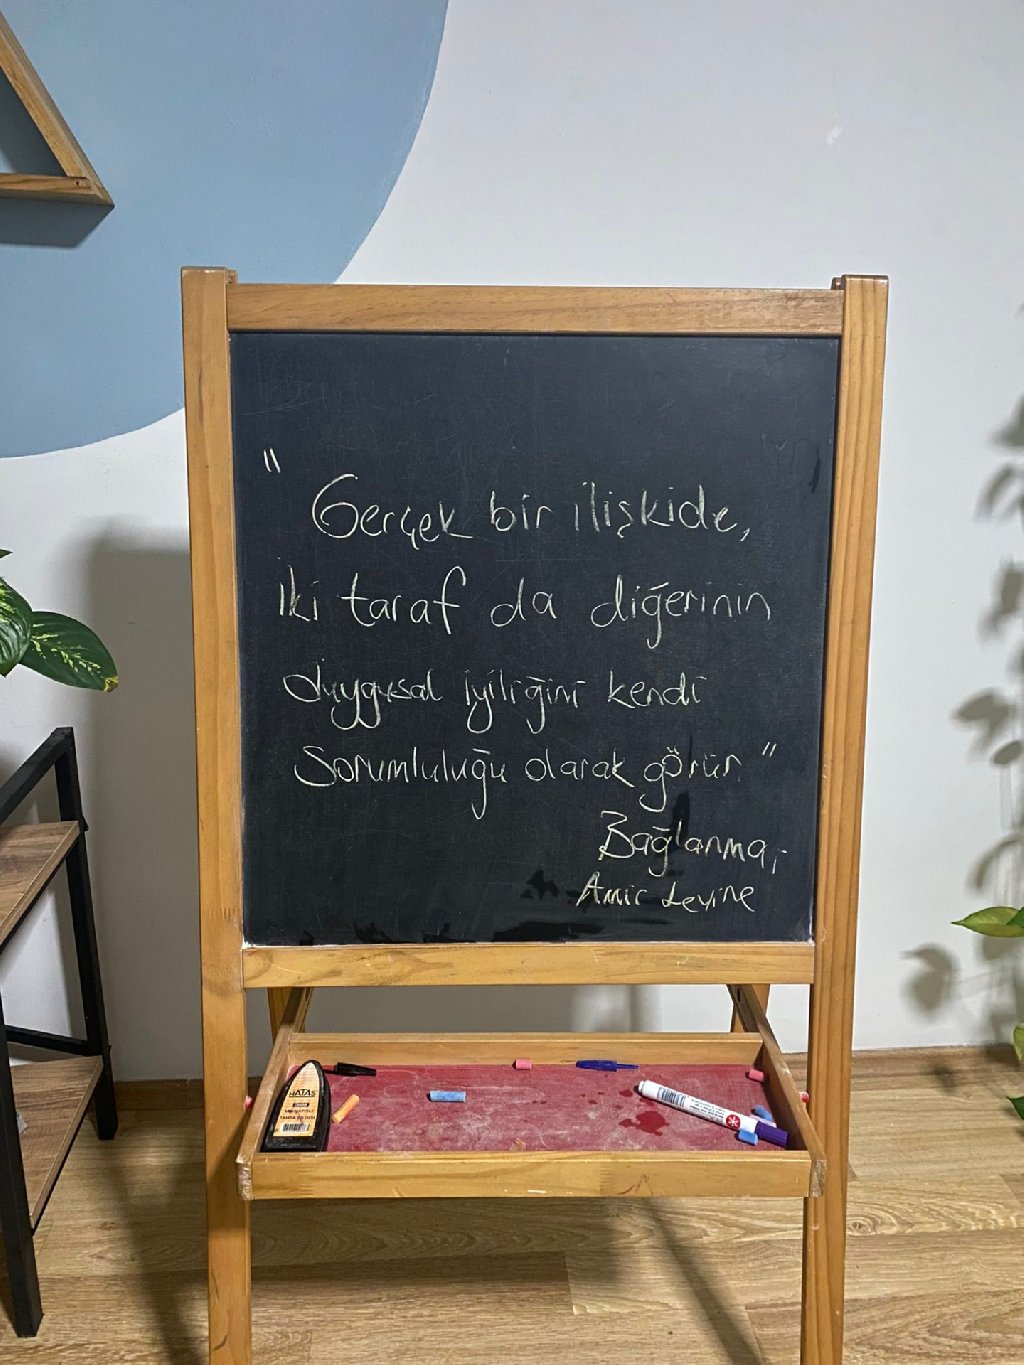 " Gerçek bir ilişkide,
iki taraf da diğerinin
duygusal iyiliğini kendi
sorumluluğu olarak görür. "
Bağlanma,
Amir Levine
HATAS